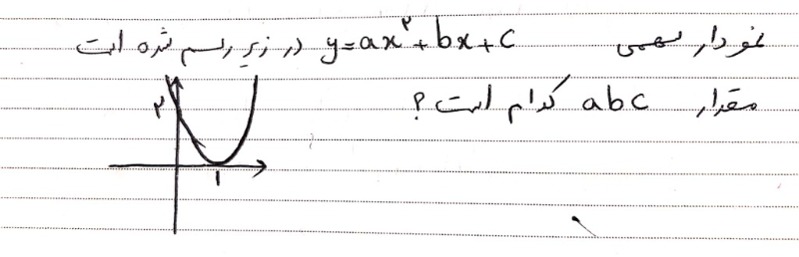 نمودار سهمی y=ax²+bx+c در زیر رسم شده است
مقدار abc کدام است؟
۲
۱